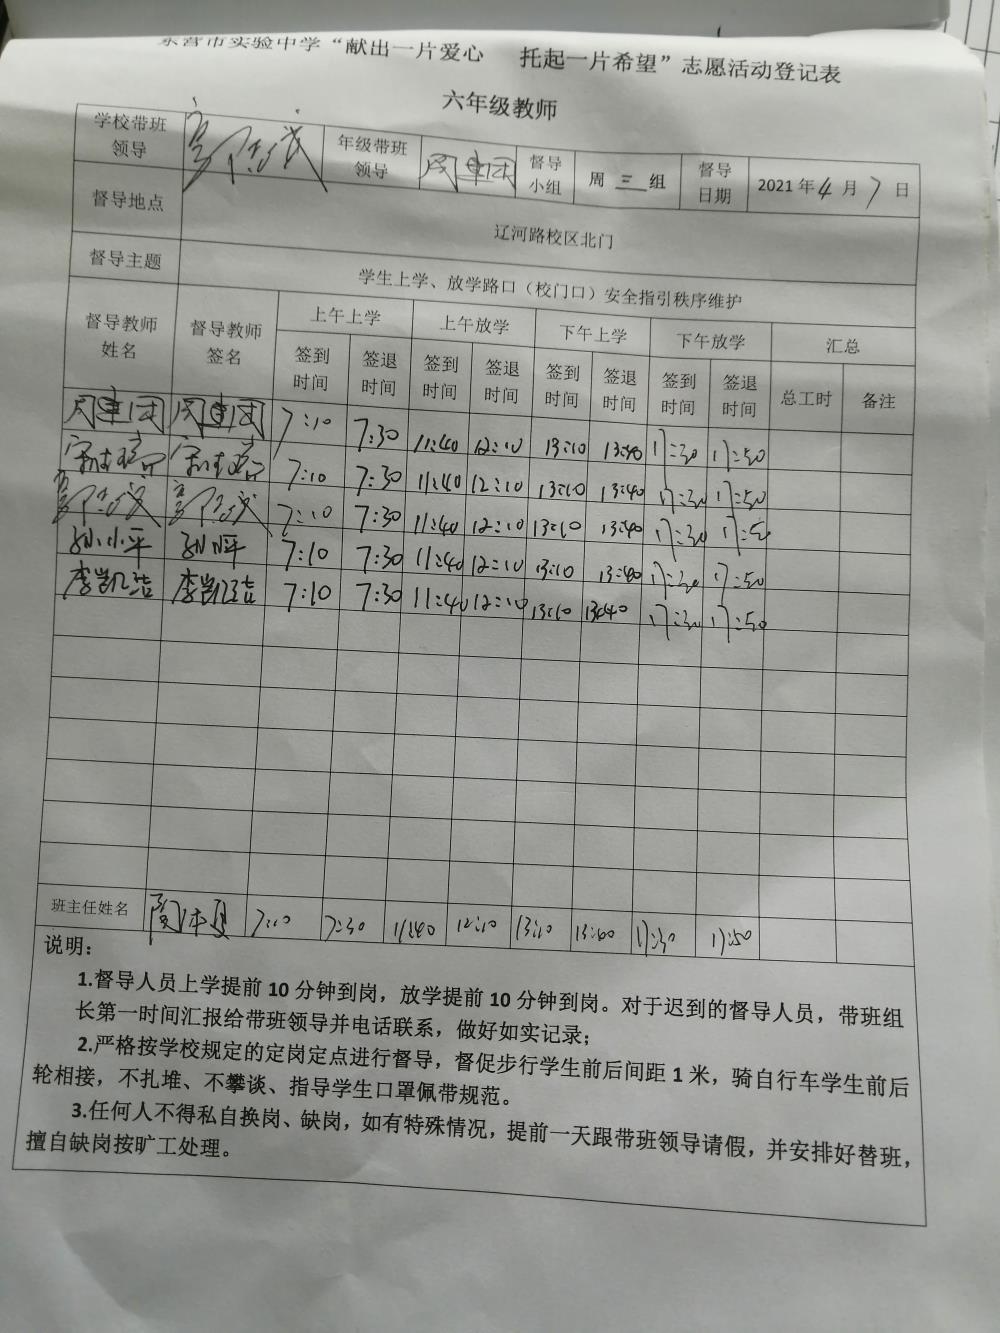 东营市实验中学“献出一片爱心 托起一片希望”志愿活动登记表
六年级教师
学校带班领导 年级带班领导 周建团 督导小组 周三组 督导日期 2021年4月7日
督导地点 辽河路校区北门
督导主题 学生上学、放学路口（校门口）安全指引秩序维护
督导教师姓名 督导教师签名 上午上学 上午放学 下午上学 下午放学 汇总
签到时间 签退时间 签到时间 签退时间 签到时间 签退时间 签到时间 签退时间 总工时 备注
周建团 周建团 7:10 7:30 11:40 12:10 13:10 13:40 17:30 17:50
7:10 7:30 11:40 12:10 13:10 13:40 17:30 17:50
7:10 7:30 11:40 12:10 13:10 13:40 17:30 17:50
孙小平 孙小平 7:10 7:30 11:40 12:10 13:10 13:40 17:30 17:50
李凯洁 李凯洁 7:10 7:30 11:40 12:10 13:10 13:40 17:30 17:50
班主任姓名 7:10 7:30 11:40 12:10 13:10 13:40 17:30 17:50
说明：
1.督导人员上学提前10分钟到岗，放学提前10分钟到岗。对于迟到的督导人员，带班组
长第一时间汇报给带班领导并电话联系，做好如实记录；
2.严格按学校规定的定岗定点进行督导，督促步行学生前后间距1米，骑自行车学生前后
轮相接，不扎堆、不攀谈、指导学生口罩佩带规范。
3.任何人不得私自换岗、缺岗，如有特殊情况，提前一天跟带班领导请假，并安排好替班，
擅自缺岗按旷工处理。